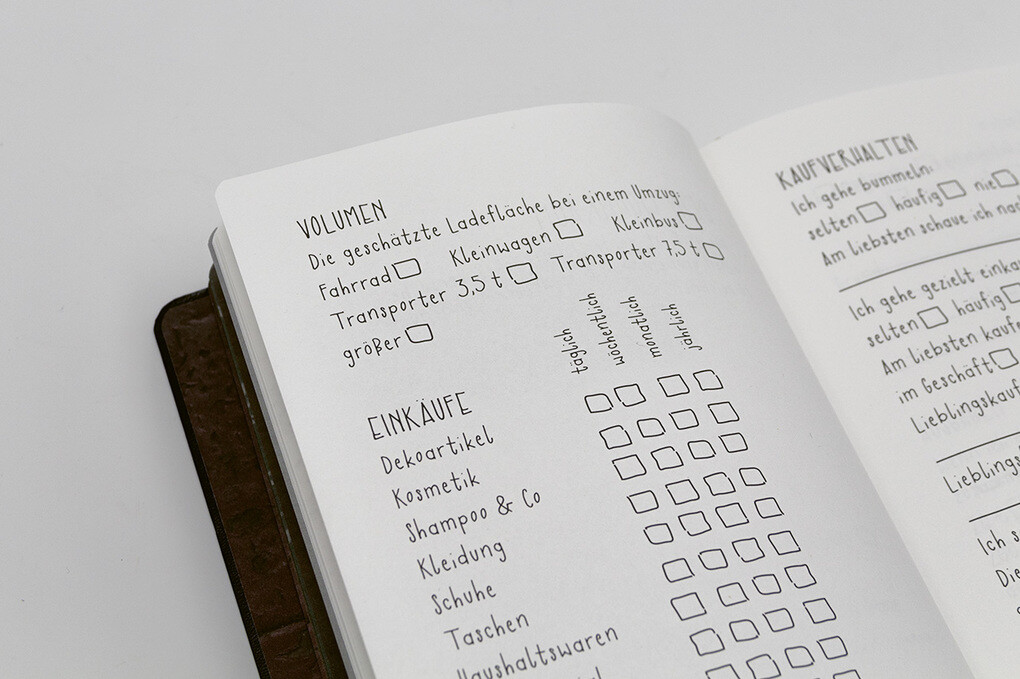 VOLUMEN
Die geschätzte Ladefläche bei einem Umzug:
Fahrrad Kleinwagen Kleinbus
Transporter 3,5 t Transporter 7,5 t
größer
täglich
wöchentlich
monatlich
jährlich
EINKÄUFE
Dekoartikel
Kosmetik
Shampoo & Co
Kleidung
Schuhe
Taschen
Haushaltswaren
KAUFVERHALTEN
Ich gehe bummeln:
selten häufig nie
Am liebsten schaue ich
Ich gehe gezielt
selten häufig
Am liebsten
im Geschäft
Ich